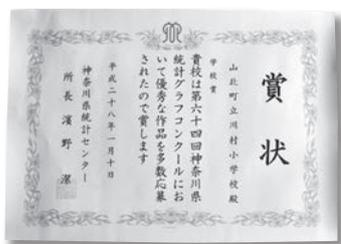 賞状
学校賞
山北町立川村小学校殿
貴校は第六十四回神奈川県
統計グラフコンクールにお
いて優秀な作品を多数応募
されたので賞します
平成二十八年一月十日
神奈川県統計センター
所長 濱野 潔